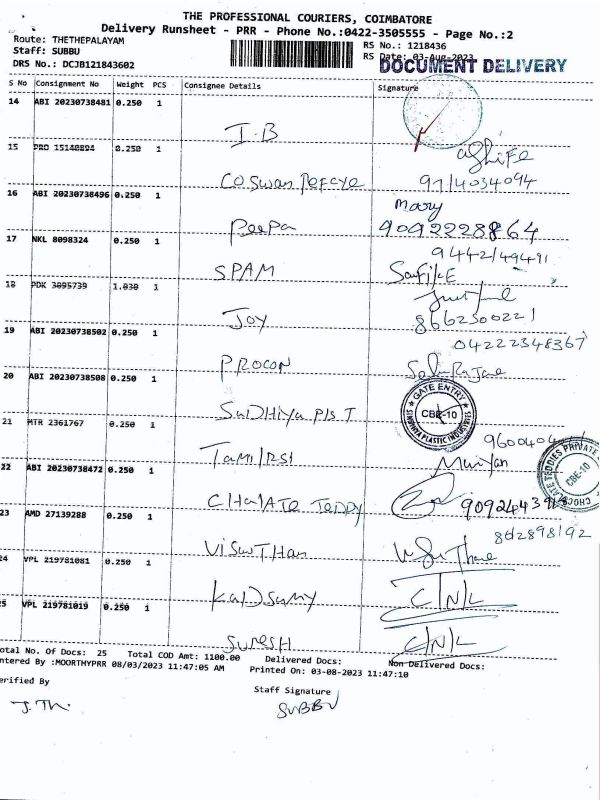 THE PROFESSIONAL COURIERS, COIMBATORE
Delivery Runsheet - PRR - Phone No.:0422-3505555 - Page No.:2
Route: THETHEPALAYAM
RS No.: 1218436
Staff: SUBBU
RS Date: 03-Aug-2023
DRS No.: DCJB121843602
DOCUMENT DELIVERY
S No Consignment No Weight PCS Consignee Details Signature
14 ABI 20230738481 0.250 1
I.B
15 PRD 15140894 0.250 1
9174034094
16 ABI 20230738496 0.250 1
Mary
Peepa 9092228864
17 NKL 8098324 0.250 1
9442149491
SPAM
18 PDK 3095739 1.030 1
JOY 8662500221
19 ABI 20230738502 0.250 1
04222348367
PROCON
20 ABI 20230738508 0.250 1
GATE ENTRY
CBE-10
SINDHIYA PLASTIC INDUSTRIES
21 MTR 2361767 0.250 1
Mariyan
22 ABI 20230738472 0.250 1
CHOCOLATE TEDDIES PRIVATE
CBE-10
TEDDY
23 AMD 27139288 0.250 1
862898192
ViswThan
24 VPL 219781081 0.250 1
C/N/L
25 VPL 219781019 0.250 1
SURESH C/N/L
Total No. Of Docs: 25 Total COD Amt: 1100.00 Delivered Docs: Non Delivered Docs:
Entered By :MOORTHYPRR 08/03/2023 11:47:05 AM Printed On: 03-08-2023 11:47:10
Verified By Staff Signature
J. Th. SUBBU